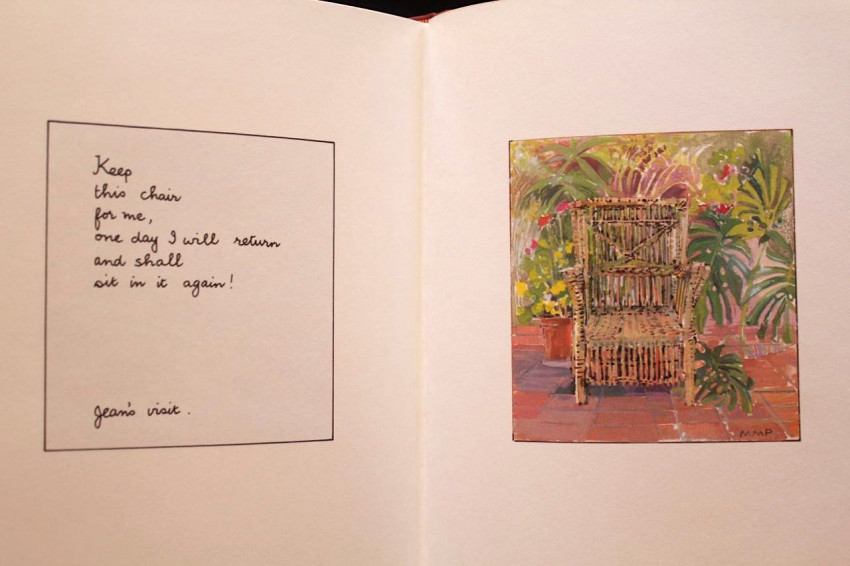 Keep
this chair
for me,
one day I will return
and shall
sit in it again!
Jean's visit.
MMP